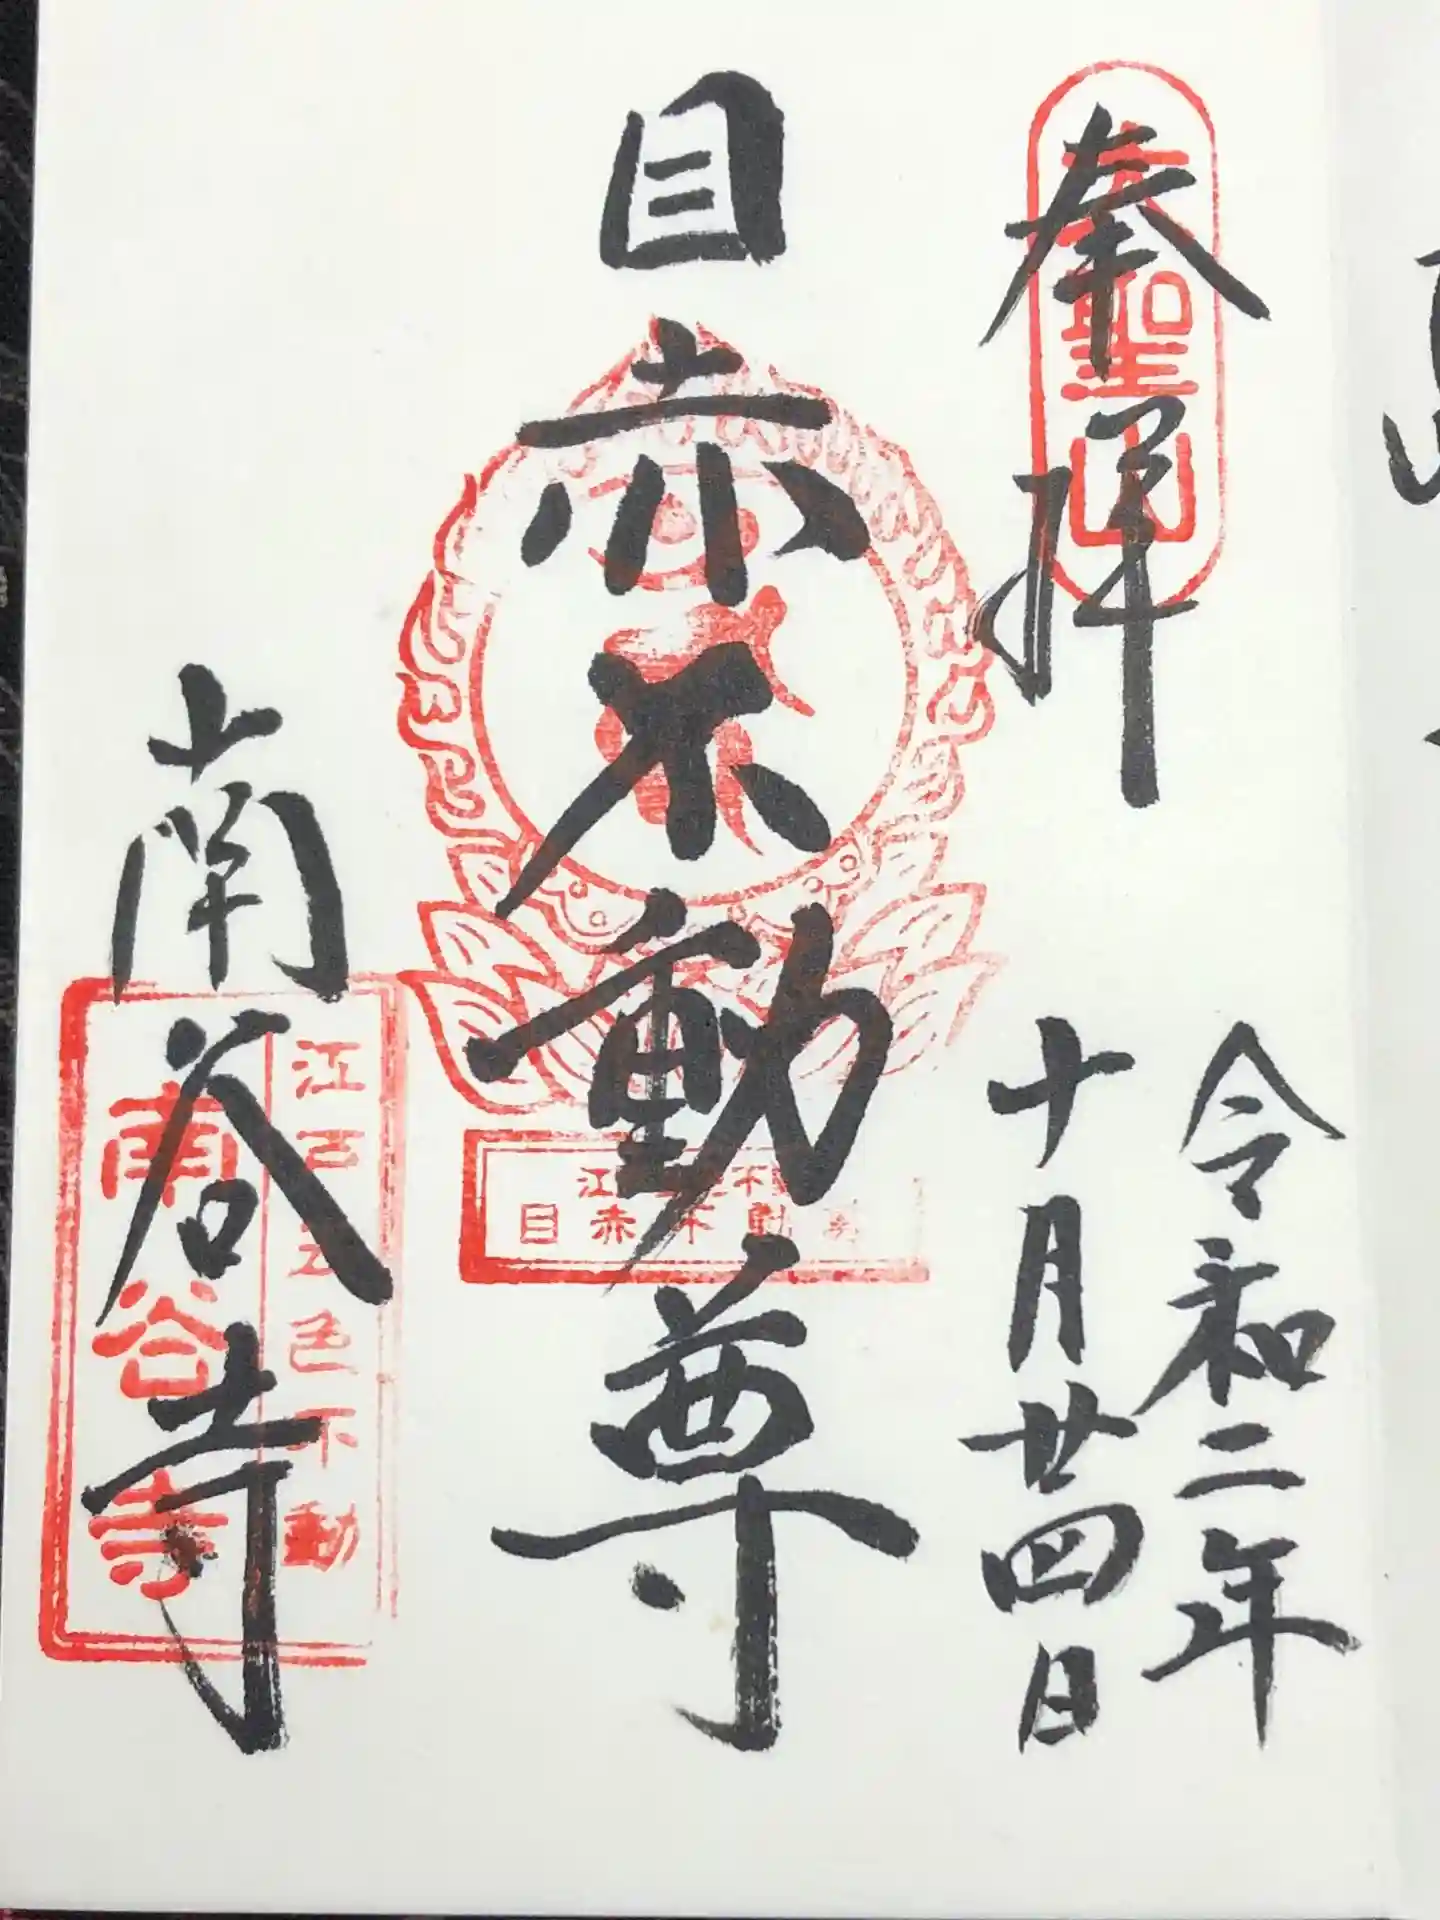 奉拝
大聖山
令和二年
十月廿四日
目赤不動尊
目赤不動尊
南谷寺
江戸五色不動
南谷寺